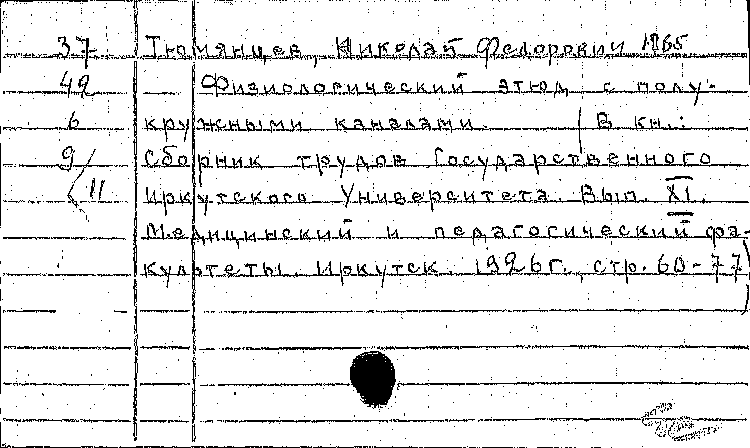 37 Тюмянцев, Николай Федорович 1865
42 — Физиологический этюд с полу-
6 кружными каналами. (В кн.:
9/11 Сборник трудов Государственного
Иркутского Университета. Вып. XI.
Медицинский и педагогический фа-
культеты. Иркутск. 1926г., стр. 60-77)